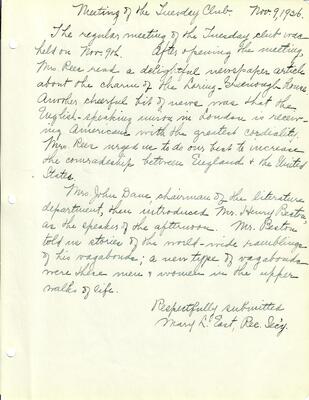 Meeting of the Tuesday Club. Nov. 9, 1926.
The regular meeting of the Tuesday club was
held on Nov. 9th. After opening the meeting,
Mrs. Rees read a delightful newspaper article
about the charm of the Loring-Greenough House
Another cheerful bit of news was that the
English-speaking union in London is receiv-
ing Americans with the greatest cordiality.
Mrs. Rees urged us to do our best to increase
the comradeship between England & the United
States.
Mrs. John Dane, chairman of the literature
department, then introduced Mr. Henry Beston
as the speaker of the afternoon. Mr. Beston
told us stories of the world-wide ramblings
of his vagabonds; a new type of vagabonds
were these men & women in the upper
walks of life.
Respectfully submitted
Mary L. East, Rec. Sec'y.